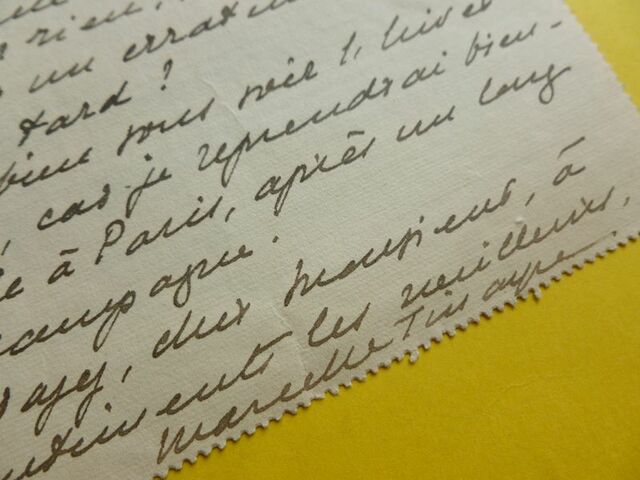 rien,
un erratum
tard ?
bien vous voir l'hiver
, car je reprendrai bien-
à Paris, après un long
campagne.
, cher monsieur, à
les meilleurs,
Marcelle Tinayre